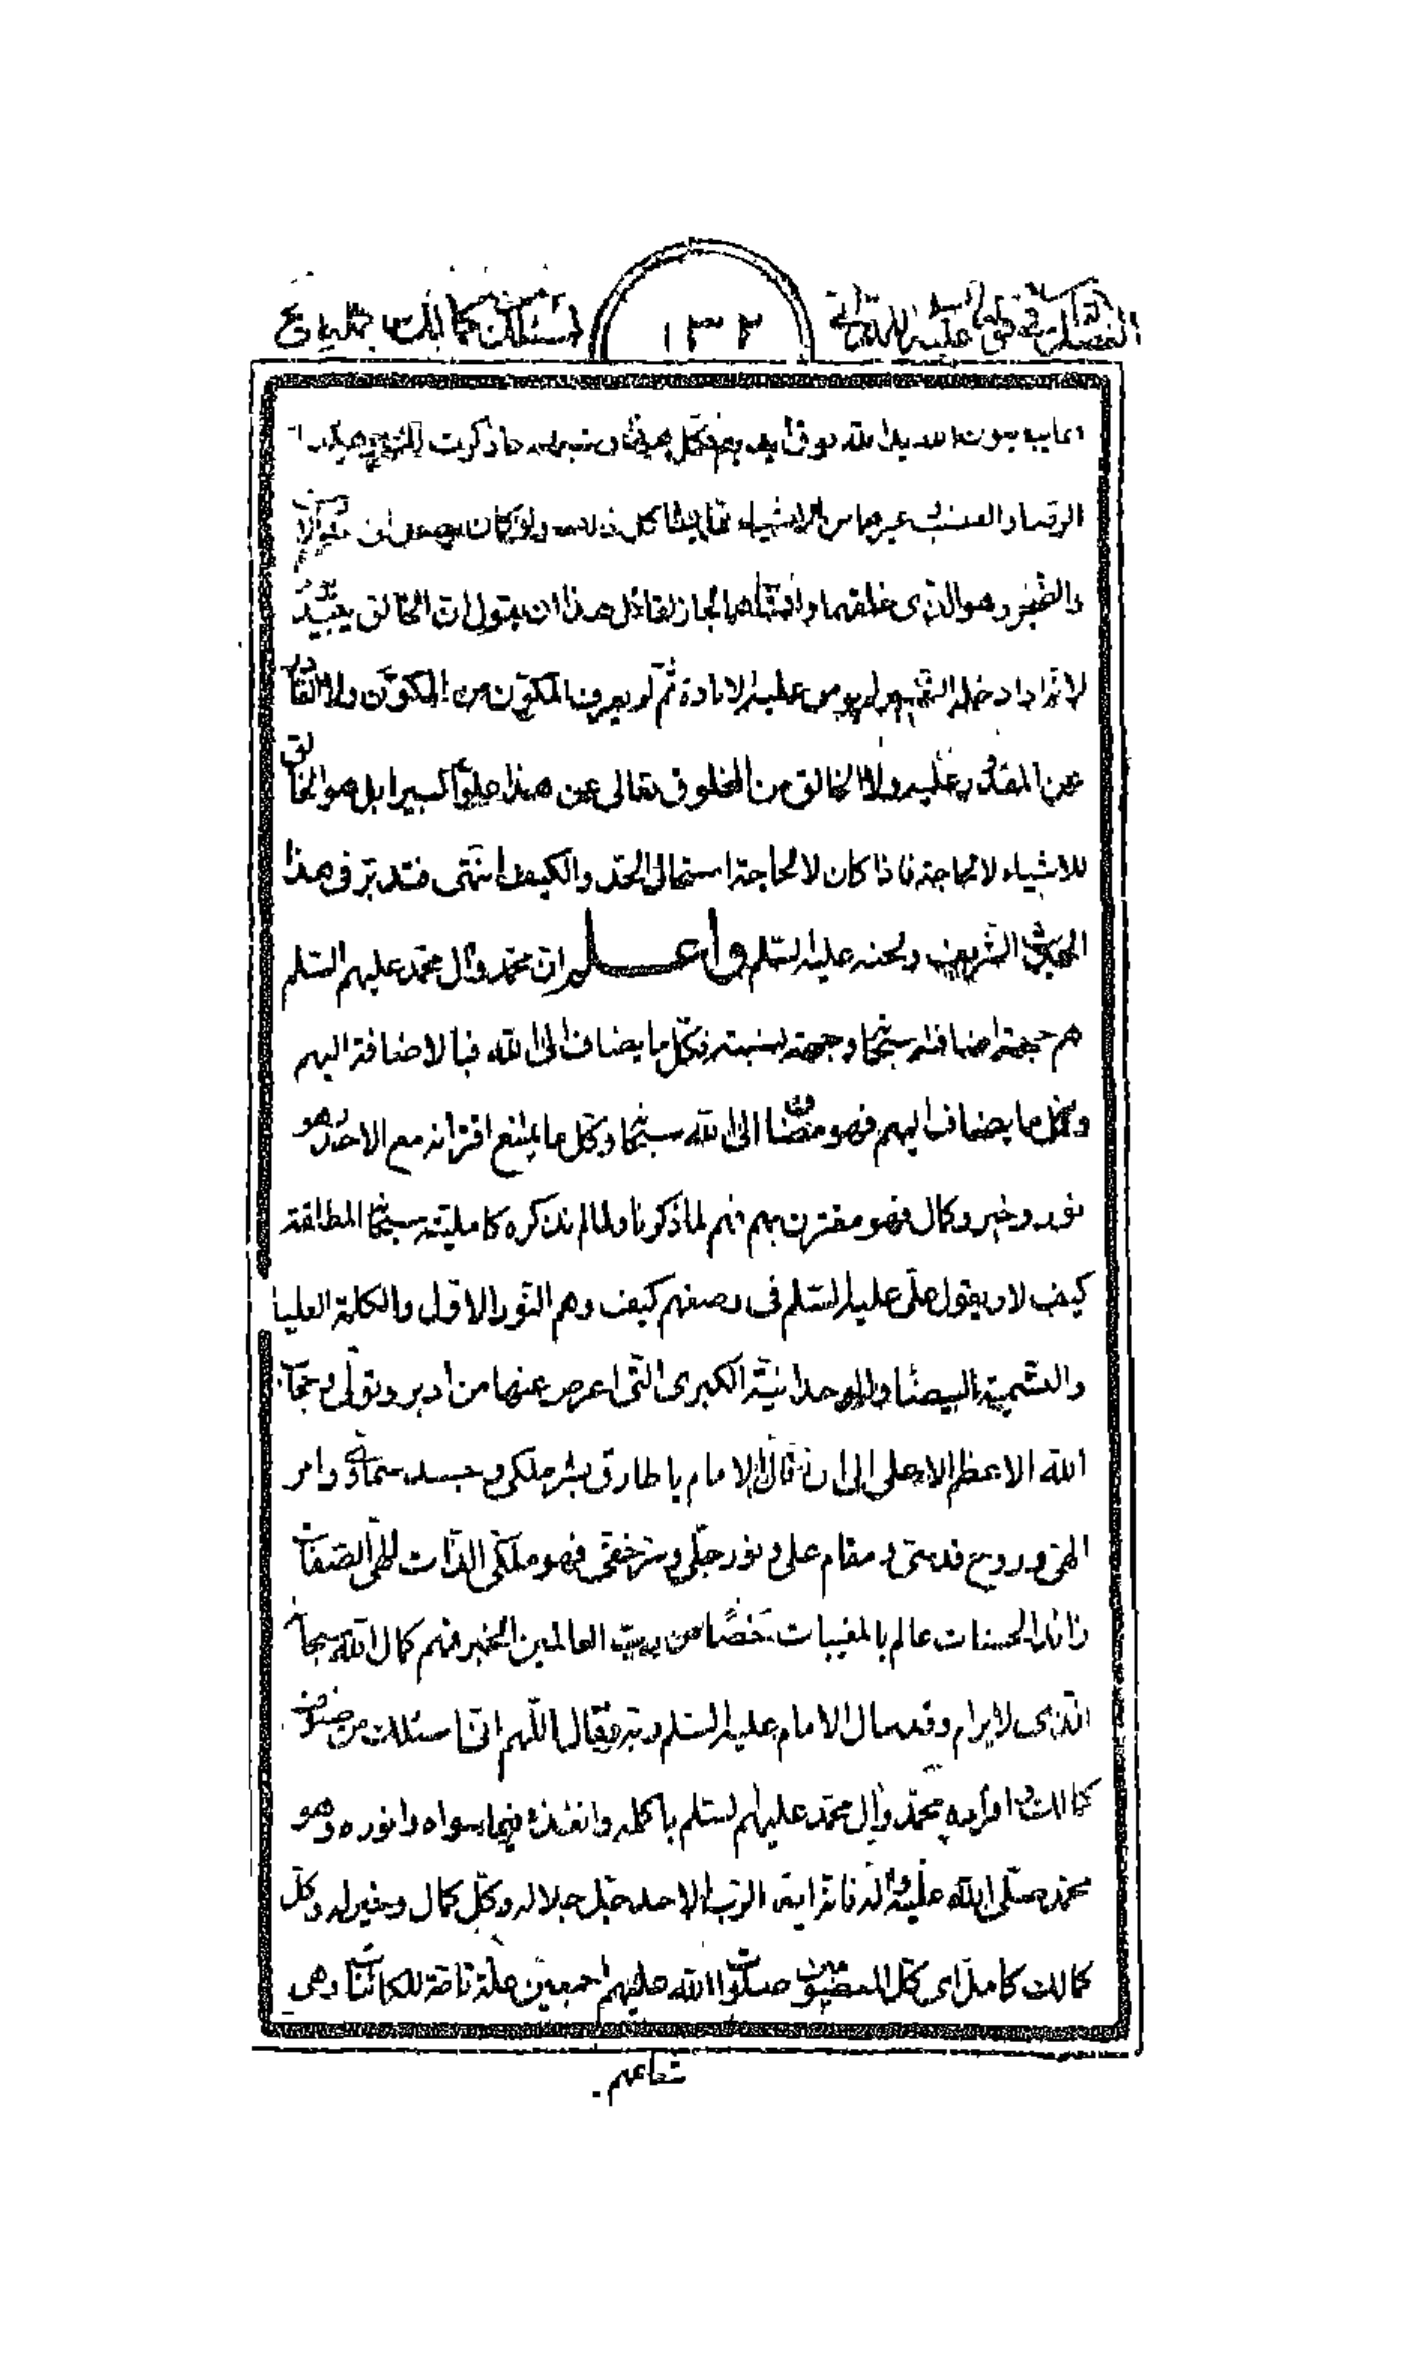 الفصل في قوله عليه السلام اللهم اني
١٣٢
اسئلك من كمالك باكمله الخ
انما يبايعون الله يد الله فوق ايديهم فكل هذا وشبهه ما ذكرت لك وهكذا
الرضا والغضب وغيرهما من الاشياء مما يشاكل ذلك ولو كان يصل الى المكون الاسف
والضجر وهو الذي خلقهما وانشأهما لجاز لقائل هذا ان يقول ان الخالق يبيد يوما
لانه اذا دخله الضجر لم يؤمن عليه الابادة ثم لم يعرف المكوّن من المكوّن ولا القادر
من المقدور عليه ولا الخالق من المخلوق تعالى عن هذا علوّا كبيرا بل هو الخالق
للاشياء لا لحاجة فاذا كان لا لحاجة استحال الحد والكيف انتهى فتدبر في هذا
الحديث الشريف ولحنه عليه السلم واعلم ان محمد وآل محمد عليهم السلم
هم جهة اضافته سبحانه وجهة نسبته فكل ما يضاف الى الله فبالاضافة اليهم
وكل ما يضاف اليهم فهو مضاف الى الله سبحانه وكل ما يمتنع اقترانه مع الاحد وهو
نور وخير وكمال فهو مقترن بهم فهم لما ذكرنا ولما لم نذكره كامليته سبحانه المطلقة
كيف لا ويقول علي عليه السلم في وصفهم كيف وهم النور الاول والكلمة العليا
والتسمية البيضاء والوحدانية الكبرى التي اعرض عنها من ادبر وتولى وحجاب
الله الاعظم الاعلى الى ان قال الامام يا طارق بشر ملكي وجسد سماوي وامر
الهي وروح قدسي ومقام علي ونور جلي وسر خفي فهو ملكي الذات الهي الصفات
زائد الحسنات عالم بالمغيبات خصّا من رب العالمين الخبر فهم كمال الله سبحانه
الذي لا يرام وقد سال الامام عليه السلم ربه فقال اللهم اني اسئلك من
كمالك محمد وآل محمد عليهم السلم باكمله وانفذه فيما سواه وانوره وهو
محمد صلى الله عليه وآله فانه اية الرب الاحد جل جلاله وكل كمال وخير له وكل
كمالك كامل اي كل المعصومين صلوات الله عليهم اجمعين علة تامة للكائنات وهي
شعاعهم